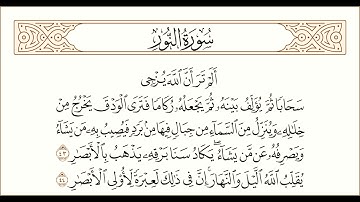 سُورَةُ النُّورِ
أَلَمْ تَرَ أَنَّ ٱللَّهَ يُزْجِى
سَحَابًا ثُمَّ يُؤَلِّفُ بَيْنَهُۥ ثُمَّ يَجْعَلُهُۥ رُكَامًا فَتَرَى ٱلْوَدْقَ يَخْرُجُ مِنْ
خِلَٰلِهِۦ وَيُنَزِّلُ مِنَ ٱلسَّمَآءِ مِن جِبَالٍ فِيهَا مِنۢ بَرَدٍ فَيُصِيبُ بِهِۦ مَن يَشَآءُ
وَيَصْرِفُهُۥ عَن مَّن يَشَآءُ ۖ يَكَادُ سَنَا بَرْقِهِۦ يَذْهَبُ بِٱلْأَبْصَٰرِ ٤٣
يُقَلِّبُ ٱللَّهُ ٱلَّيْلَ وَٱلنَّهَارَ ۚ إِنَّ فِى ذَٰلِكَ لَعِبْرَةً لِّأُو۟لِى ٱلْأَبْصَٰرِ ٤٤